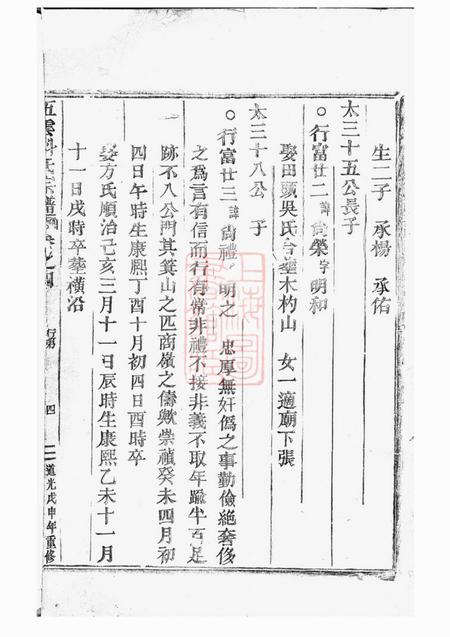 生二子 承楊 承佑
太三十五公長子
○行富廿二諱尙榮字明和
娶田頭吳氏合塟木杓山 女一適廟下張
太三十八公子
○行富廿三諱尙禮 明之 忠厚無奸僞之事勤儉絶奢侈
之爲言有信而行有常非禮不接非義不取年踰半百足
跡不入公門其箕山之匹商嶺之儔歟崇禎癸未四月初
四日午時生康熙丁酉十月初四日酉時卒
娶方氏順治己亥三月十一日辰時生康熙乙未十一月
十一日戌時卒塟橫沿
五雲 氏宗譜 卷之四
行第
四
道光戊申年重修